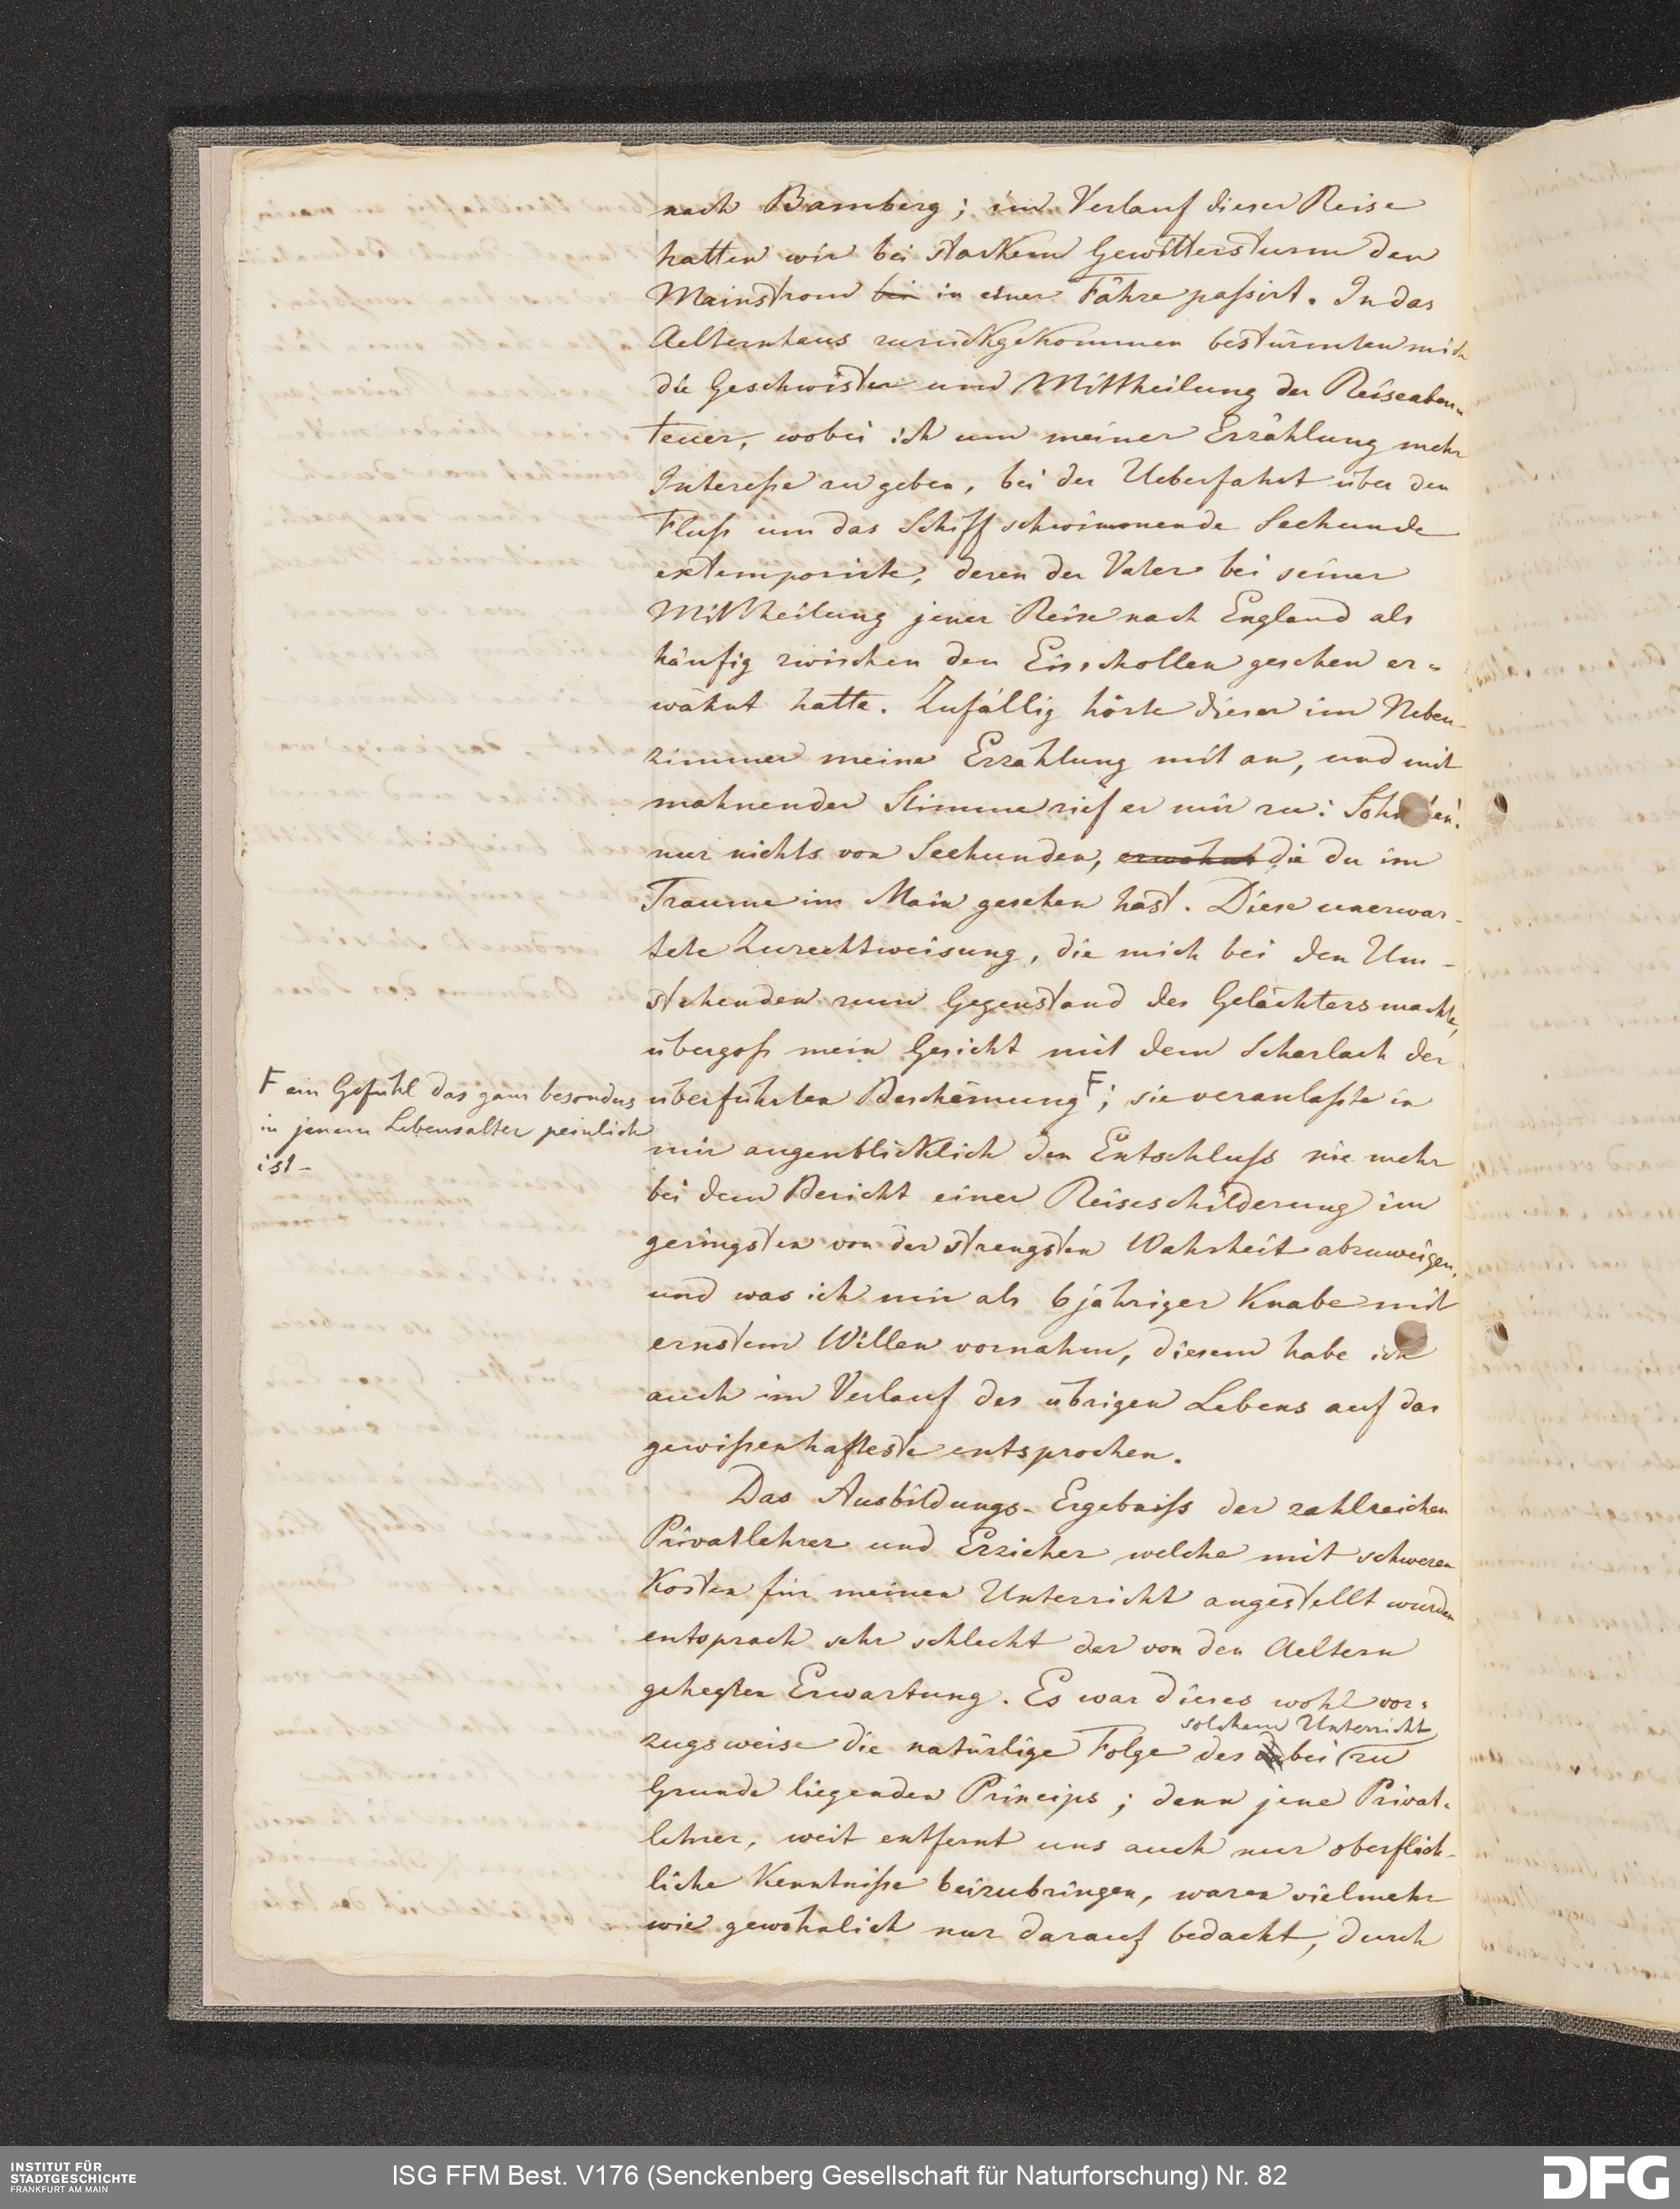 nach Bamberg; im Verlauf dieser Reise
hatten wir bei starkem Gewittersturm den
Mainstrom bei in einer Fähre paßirt. In das
Aelternhaus zurückgekommen bestürmten mich
die Geschwister um Mittheilung der Reiseaben-
teuer, wobei ich um meiner Erzählung mehr
Intereße zu geben, bei der Ueberfahrt über den
Fluß um das Schiff schwimmende Seehunde
extemporirte, deren der Vater bei seiner
Mittheilung jener Reise nach England als
häufig zwischen den Eisschollen gesehen er-
wähnt hatte. Zufällig hörte dieser im Neben-
zimmer meine Erzahlung mit an, und mit
mahnender Stimme rief er mir zu:
nur nichts von Seehunden, erwähnt die du im
Traume im Main gesehen hast. Diese unerwar-
tete Zurechtweisung, die mich bei den Um-
stehenden zum Gegenstand des Gelächters machte,
übergoß mein Gesicht mit dem Scharlach der
überführten Beschämung F; sie veranlaßte in
F ein Gefühl das ganz besonders
in jenem Lebensalter peinlich
ist-
mir augenblicklich den Entschluß nie mehr
bei dem Bericht einer Reiseschilderung im
geringsten von der strengsten Wahrheit abzuweigen,
und was ich mir als 6 jähriger Knabe mit
ernstem Willen vornahm, diesem habe ich
auch im Verlauf des übrigen Lebens auf das
gewißenhafteste entsprochen.
Das Ausbildungs-Ergebniß der zahlreichen
Privatlehrer und Erzieher welche mit schweren
Kosten für meinen Unterricht angestellt wurden
entsprach sehr schlecht der von den Aeltern
gehegten Erwartung. Es war dieses wohl vor-
solchem Unterricht
zugsweise die natürlige Folge des bei zu
Grunde liegenden Princips; denn jene Privat-
lehrer, weit entfernt uns auch nur oberfläch-
liche Kenntniße beizubringen, waren vielmehr
wie gewöhnlich nur darauf bedacht, durch
INSTITUT FÜR
STADTGESCHICHTE
FRANKFURT AM MAIN
ISG FFM Best. V176 (Senckenberg Gesellschaft für Naturforschung) Nr. 82
DFG